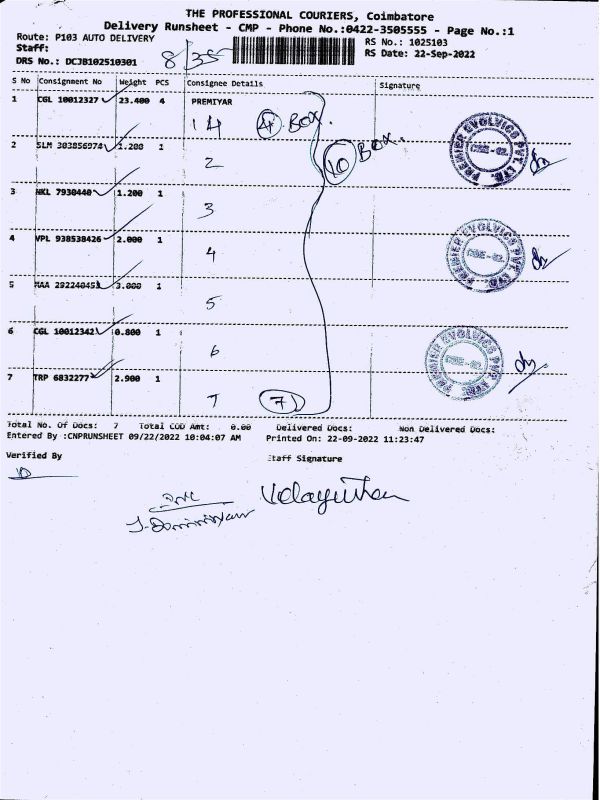 THE PROFESSIONAL COURIERS, Coimbatore
Delivery Runsheet - CMP - Phone No.:0422-3505555 - Page No.:1
Route: P103 AUTO DELIVERY
RS No.: 1025103
Staff:
8/35
RS Date: 22-Sep-2022
DRS No.: DCJB102510301
S No Consignment No Weight PCS Consignee Details Signature
1 CGL 10012327 23.400 4 PREMIYAR
14 4 BOX.
10 BOX.
2 SLM 303856974 1.200 1
2
3 NKL 7930440 1.200 1
3
4 VPL 938538426 2.000 1
4
5 MAA 292240453 3.000 1
5
6 CGL 10012342 0.800 1
6
7 TRP 6832277 2.900 1
7 7
PREMIER EVOLVICS PVT. LTD.
CBE - 02.
PREMIER EVOLVICS PVT. LTD.
CBE - 02.
PREMIER EVOLVICS PVT. LTD.
CBE - 02.
Total No. Of Docs: 7 Total COD Amt: 0.00 Delivered Docs: Non Delivered Docs:
Entered By :CNPRUNSHEET 09/22/2022 10:04:07 AM Printed On: 22-09-2022 11:23:47
Verified By
Staff Signature
10
Velayuthan